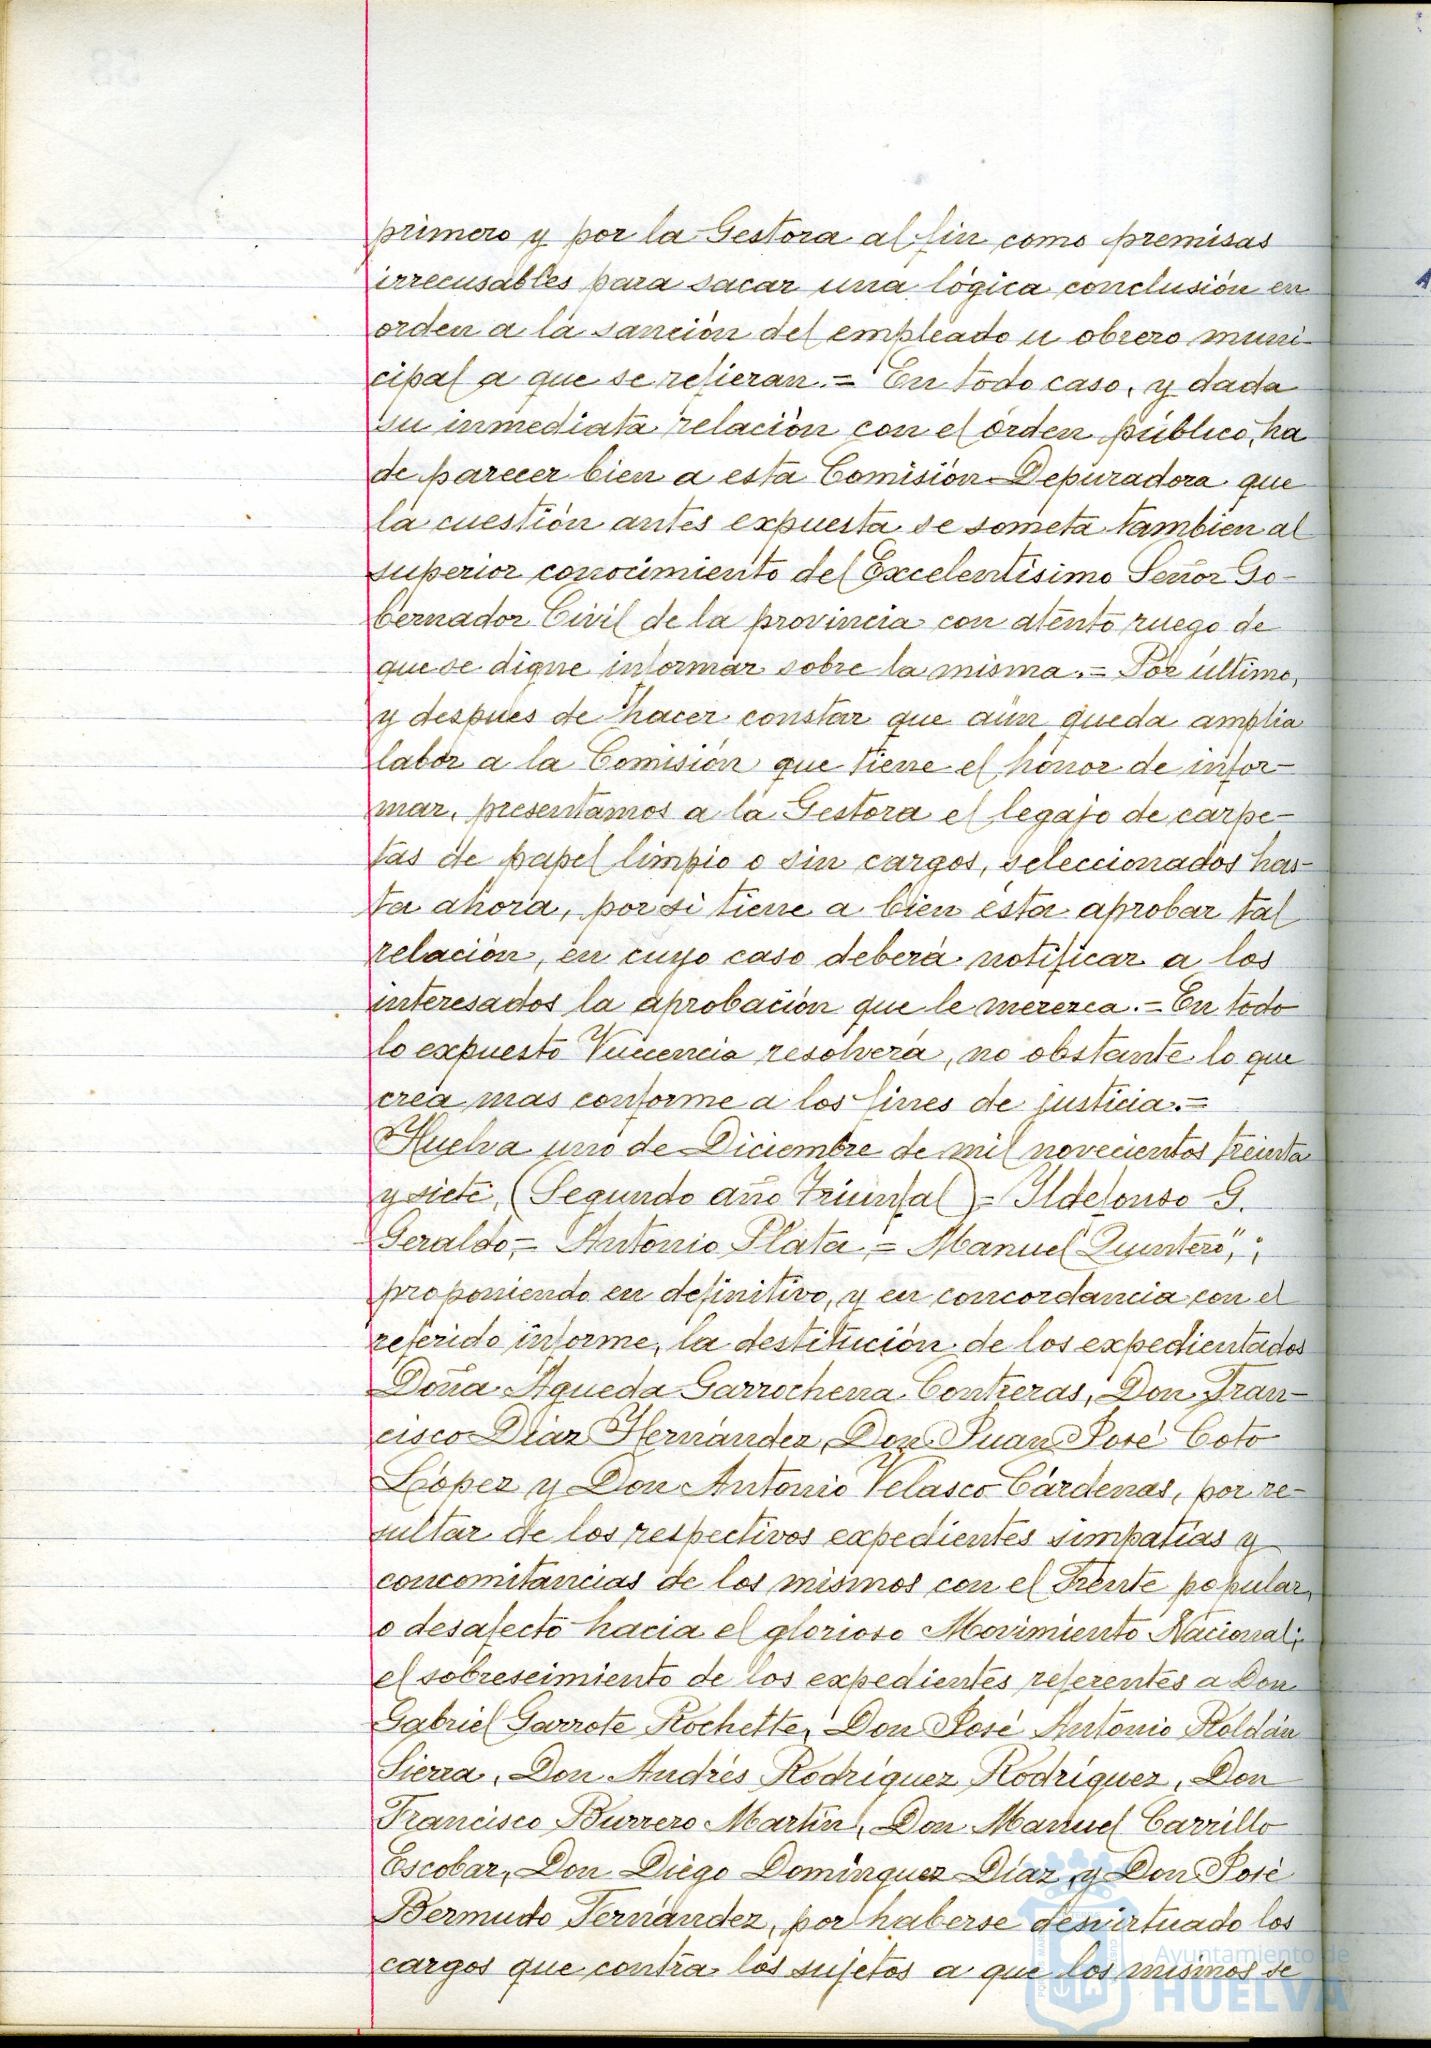 primero y por la Gestora al fin como premisas
irrecusables para sacar una lógica conclusión en
orden a la sanción del empleado u obrero muni-
cipal a que se refieran.= En todo caso, y dada
su inmediata relación con el órden público, ha
de parecer bien a esta Comisión Depuradora que
la cuestión antes expuesta se someta tambien al
superior conocimiento del Excelentísimo Señor Go-
bernador Civil de la provincia con atento ruego de
que se digne informar sobre la misma.= Por último,
y despues de hacer constar que aún queda amplia
labor a la Comisión que tiene el honor de infor-
mar, presentamos a la Gestora el legajo de carpe-
tas de papel limpio o sin cargos, seleccionados has-
ta ahora, por si tiene a bien ésta aprobar tal
relación, en cuyo caso deberá notificar a los
interesados la aprobación que le merezca.= En todo
lo expuesto Vuecencia resolverá, no obstante lo que
crea mas conforme a los fines de justicia.=
Huelva uno de Diciembre de mil novecientos treinta
y siete, (Segundo año Triunfal)= Ildefonso G.
Geraldo,= Antonio Plata,= Manuel Quintero",;
proponiendo en definitivo, y en concordancia con el
referido informe, la destitución de los expedientados
Doña Agueda Garrochena Contreras, Don Fran-
cisco Díaz Hernández, Don Juan José Coto
López y Don Antonio Velasco Cárdenas, por re-
sultar de los respectivos expedientes simpatías y
concomitancias de los mismos con el Frente popular,
o desafecto hacia el glorioso Movimiento Nacional;
el sobreseimiento de los expedientes referentes a Don
Gabriel Garrote Rochette, Don José Antonio Roldán
Sierra, Don Andrés Rodríguez Rodríguez, Don
Francisco Burrero Martín, Don Manuel Carrillo
Escobar, Don Diego Domínguez Díaz, y Don José
Bermudo Fernández, por haberse desvirtuado los
cargos que contra los sujetos a que los mismos se
Ayuntamiento de
HUELVA